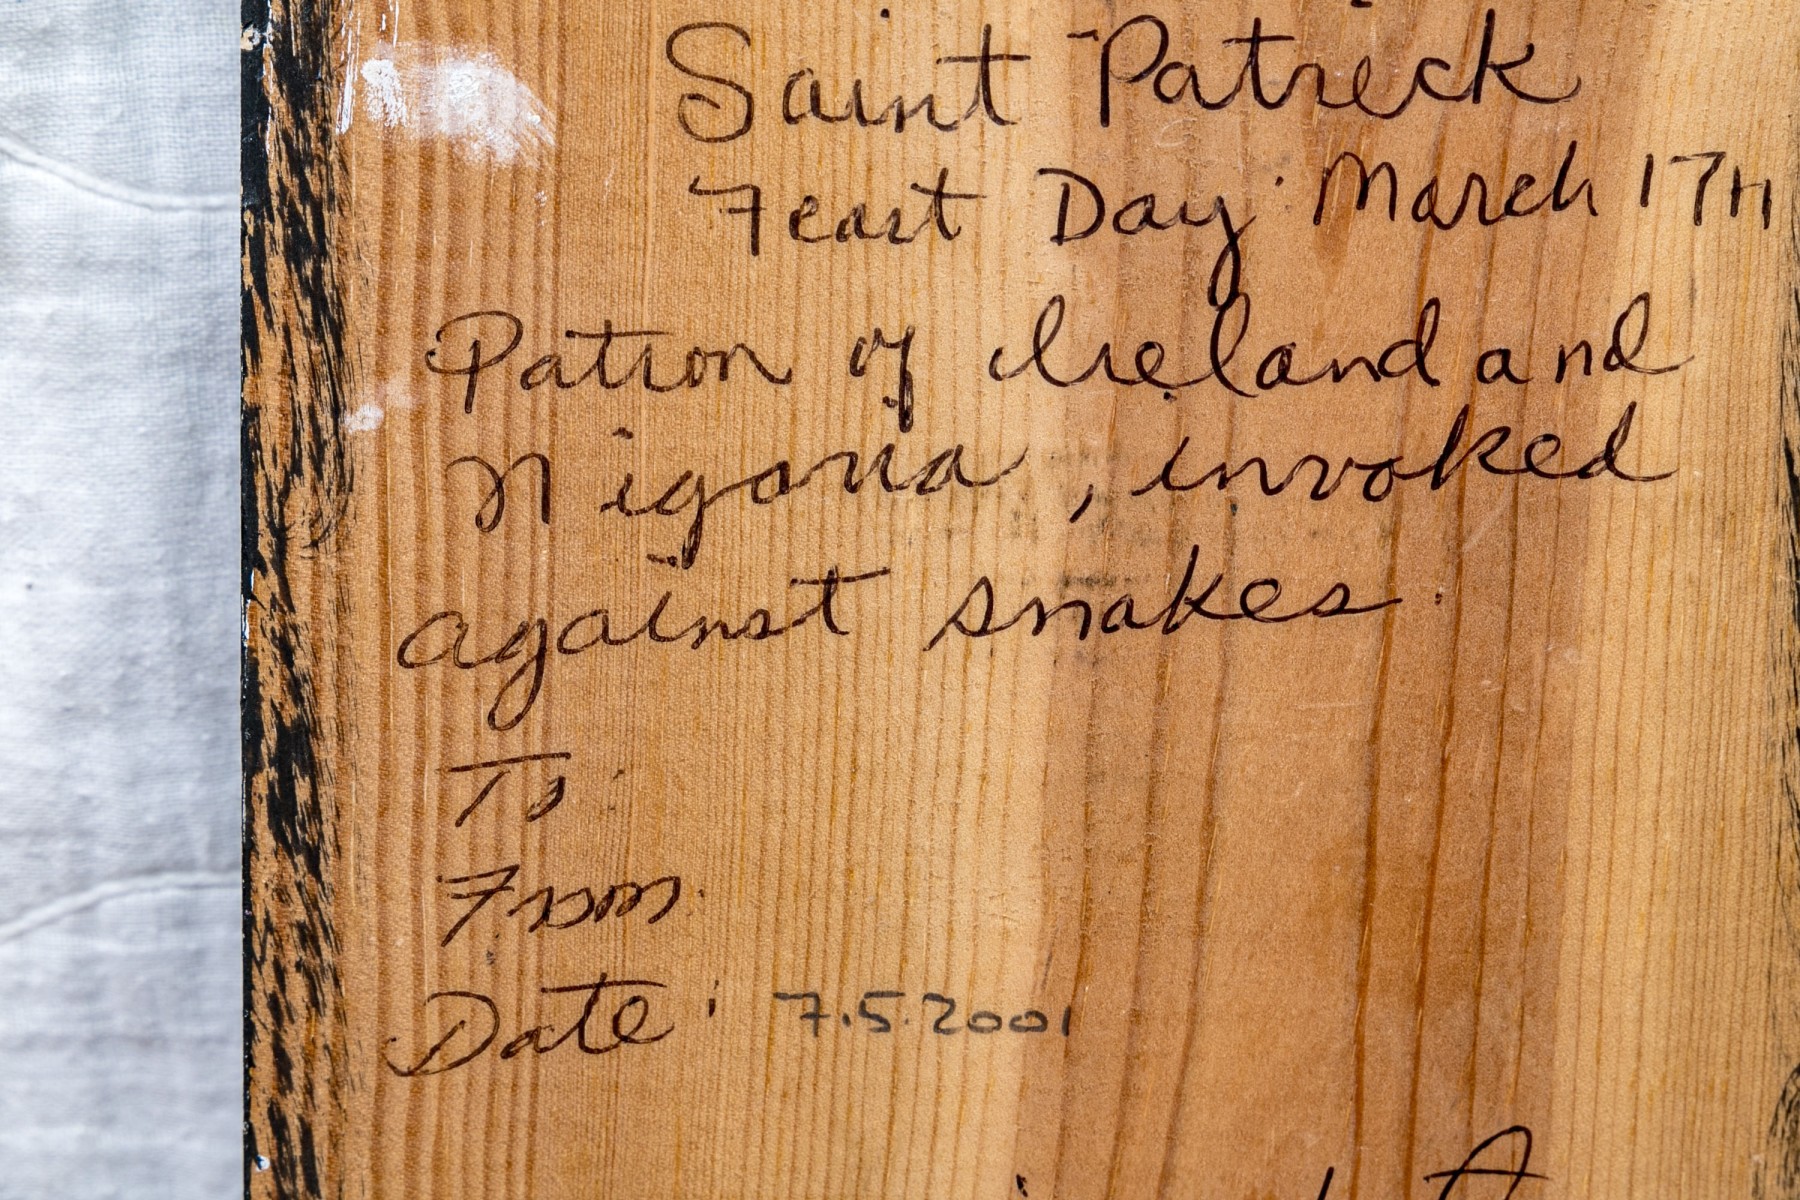 Saint Patrick
Feast Day: March 17TH
Patron of Ireland and
Nigaria, invoked
against snakes.
To:
From:
Date: 7.5.2001